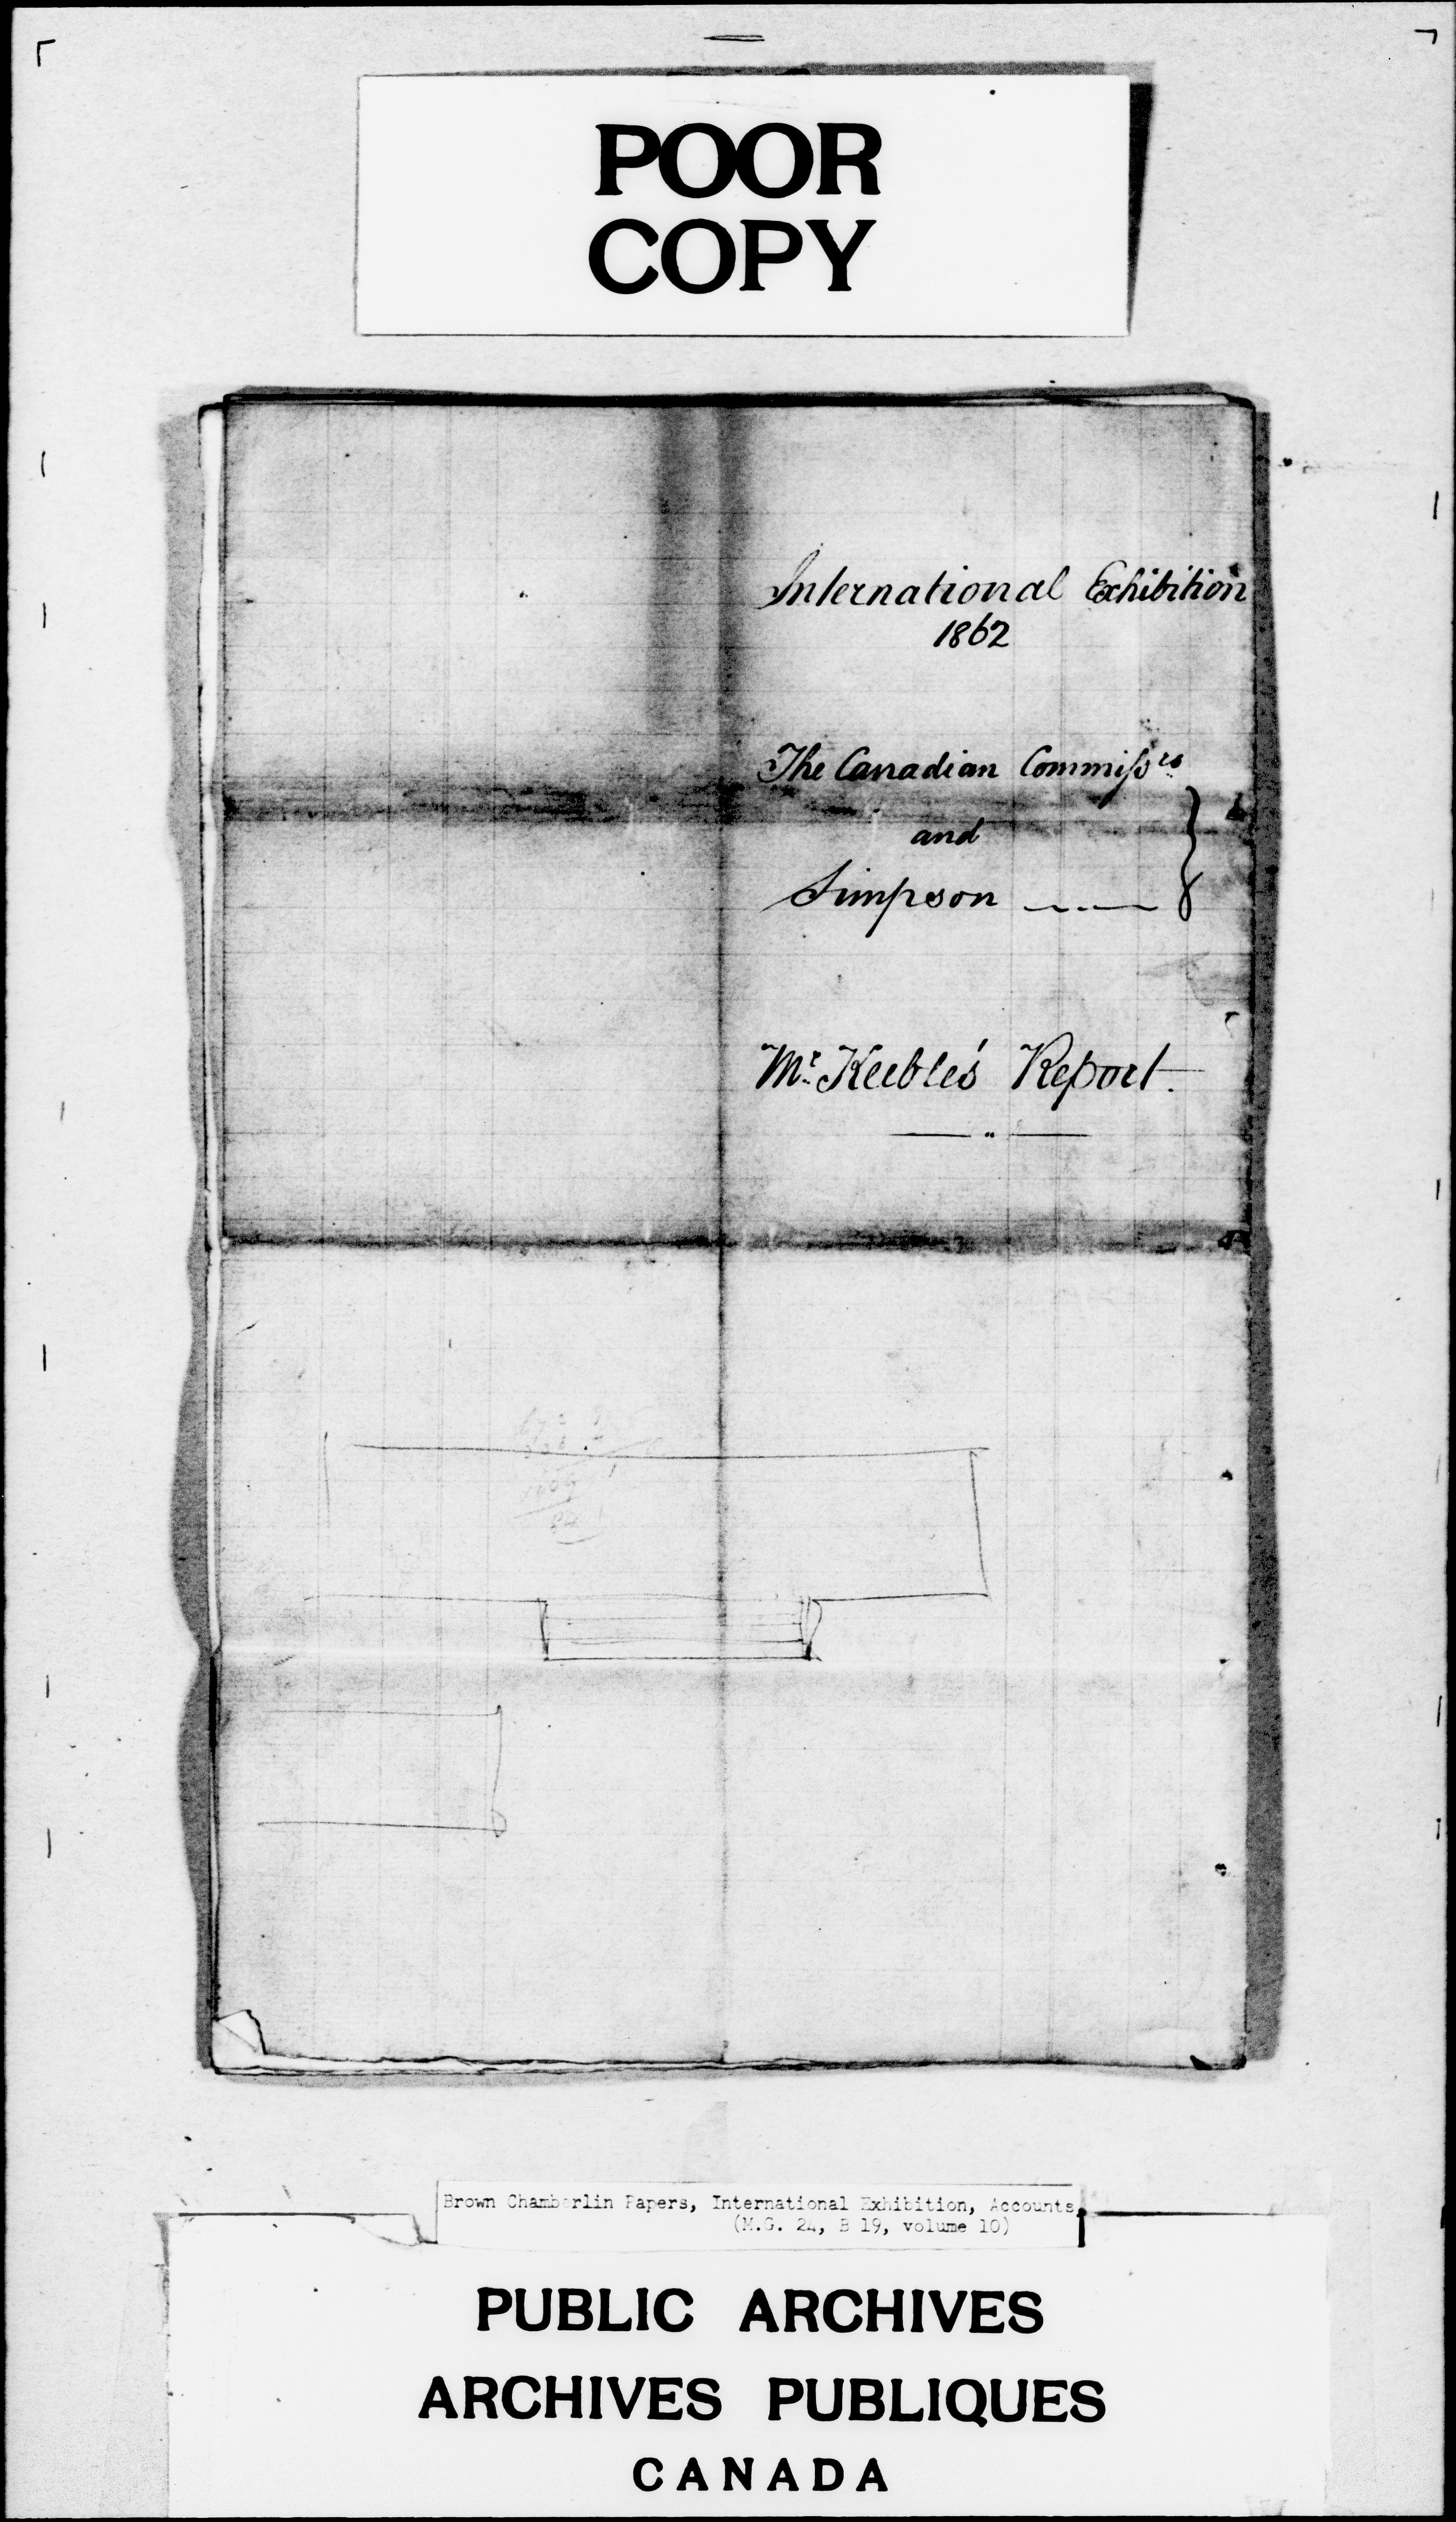 POOR
COPY
International Exhibition
1862
The Canadian Commissrs
and
Simpson
Mr. Keeble's Report.
Brown Chamberlin Papers, International Exhibition, Accounts,
(M.G. 24, B 19, volume 10)
PUBLIC ARCHIVES
ARCHIVES PUBLIQUES
CANADA